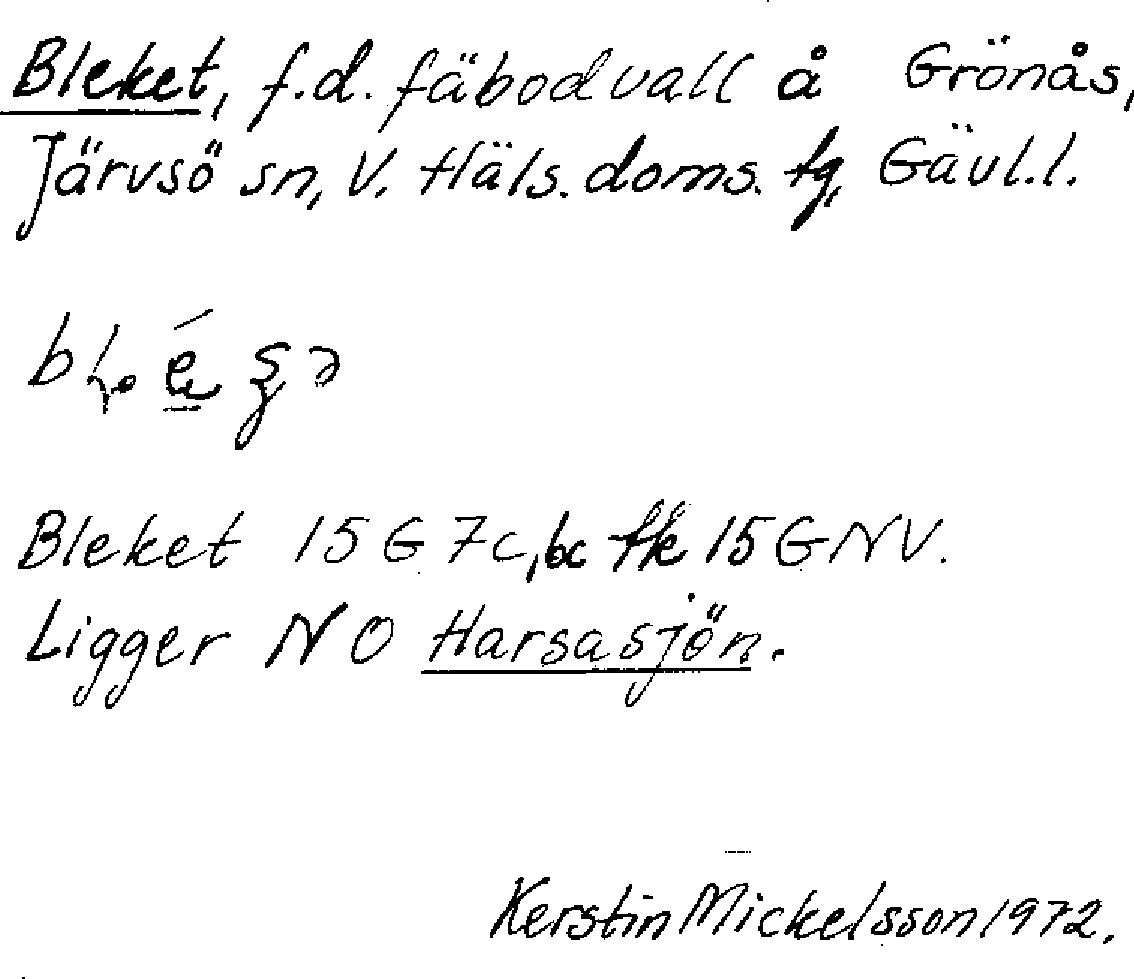 Bleket, f.d. fäbodvall å Grönås,
Järvsö sn, V. Häls. doms. tg, Gävl.l.
Bleket 15 G 7c, bc tk 15 G NV.
Ligger NO Harsasjön.
Kerstin Mickelsson 1972.